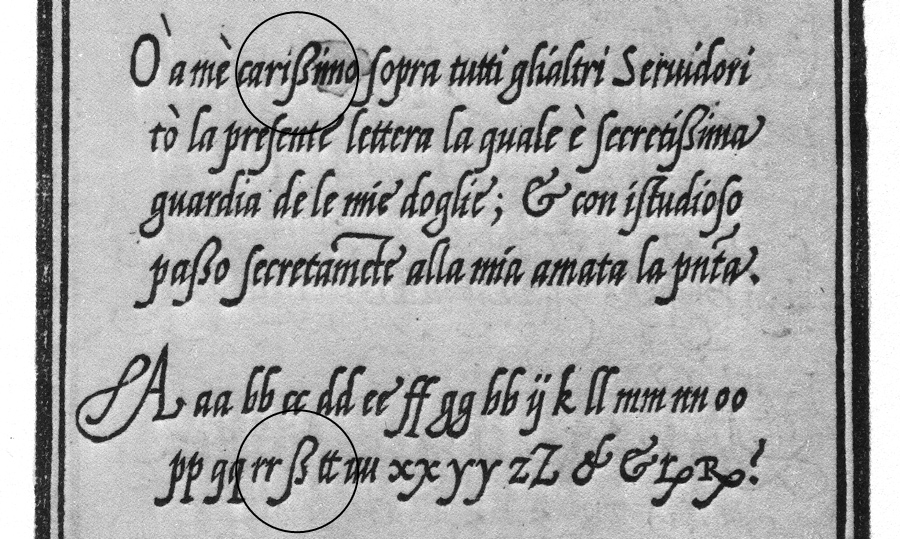 O à mè carißimo ſopra tutti glialtri Seruidori
tò la preſente lettera la quale è ſecretißima
guardia de le mie doglie; & con iſtudioſo
paßo ſecretamēte alla mia amata la pn̄ta.
A aa bb cc dd ee ff gg hh ij k ll mm nn oo
pp qq rr ß tt uu xx yy zZ & &